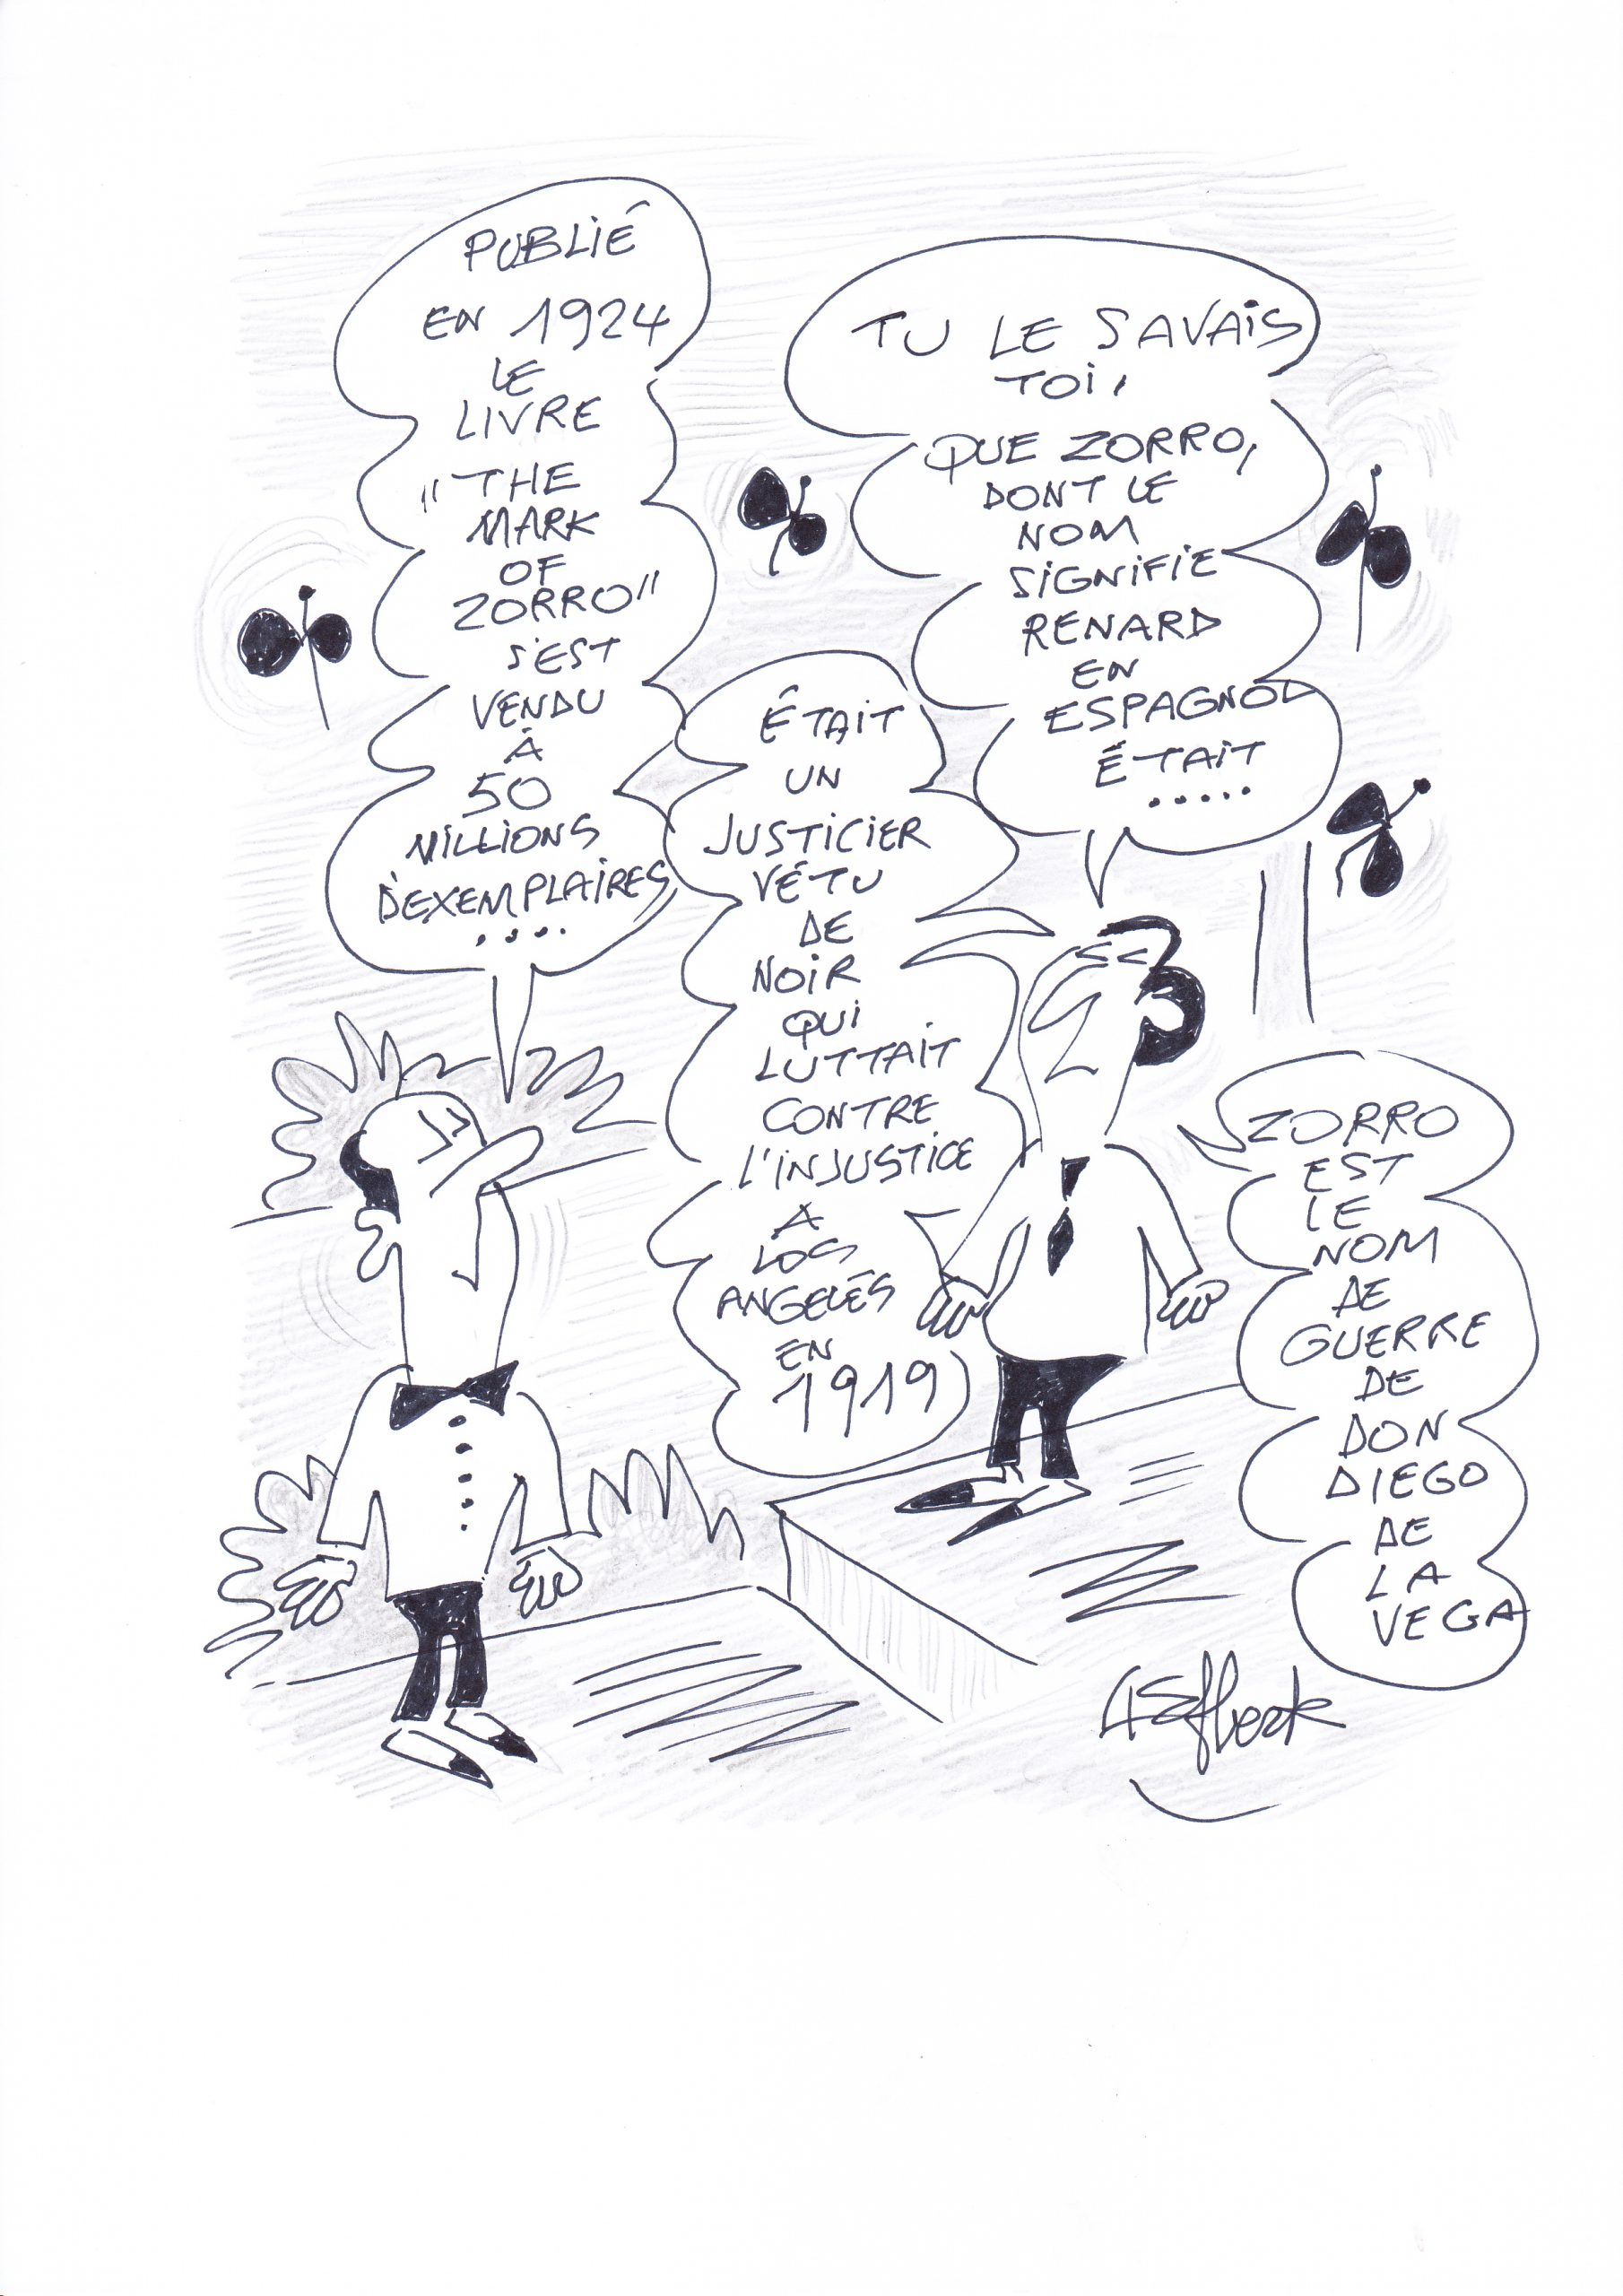 PUBLIÉ
EN 1924
LE
LIVRE
"THE
MARK
OF
ZORRO"
S'EST
VENDU
À
50
MILLIONS
D'EXEMPLAIRES
....
TU LE SAVAIS
TOI,
QUE ZORRO,
DONT LE
NOM
SIGNIFIE
RENARD
EN
ESPAGNOL
ÉTAIT
.....
ÉTAIT
UN
JUSTICIER
VÉTU
DE
NOIR
QUI
LUTTAIT
CONTRE
L'INJUSTICE
A
LOS
ANGELÉS
EN
1919
ZORRO
EST
LE
NOM
DE
GUERRE
DE
DON
DIEGO
DE
LA
VEGA